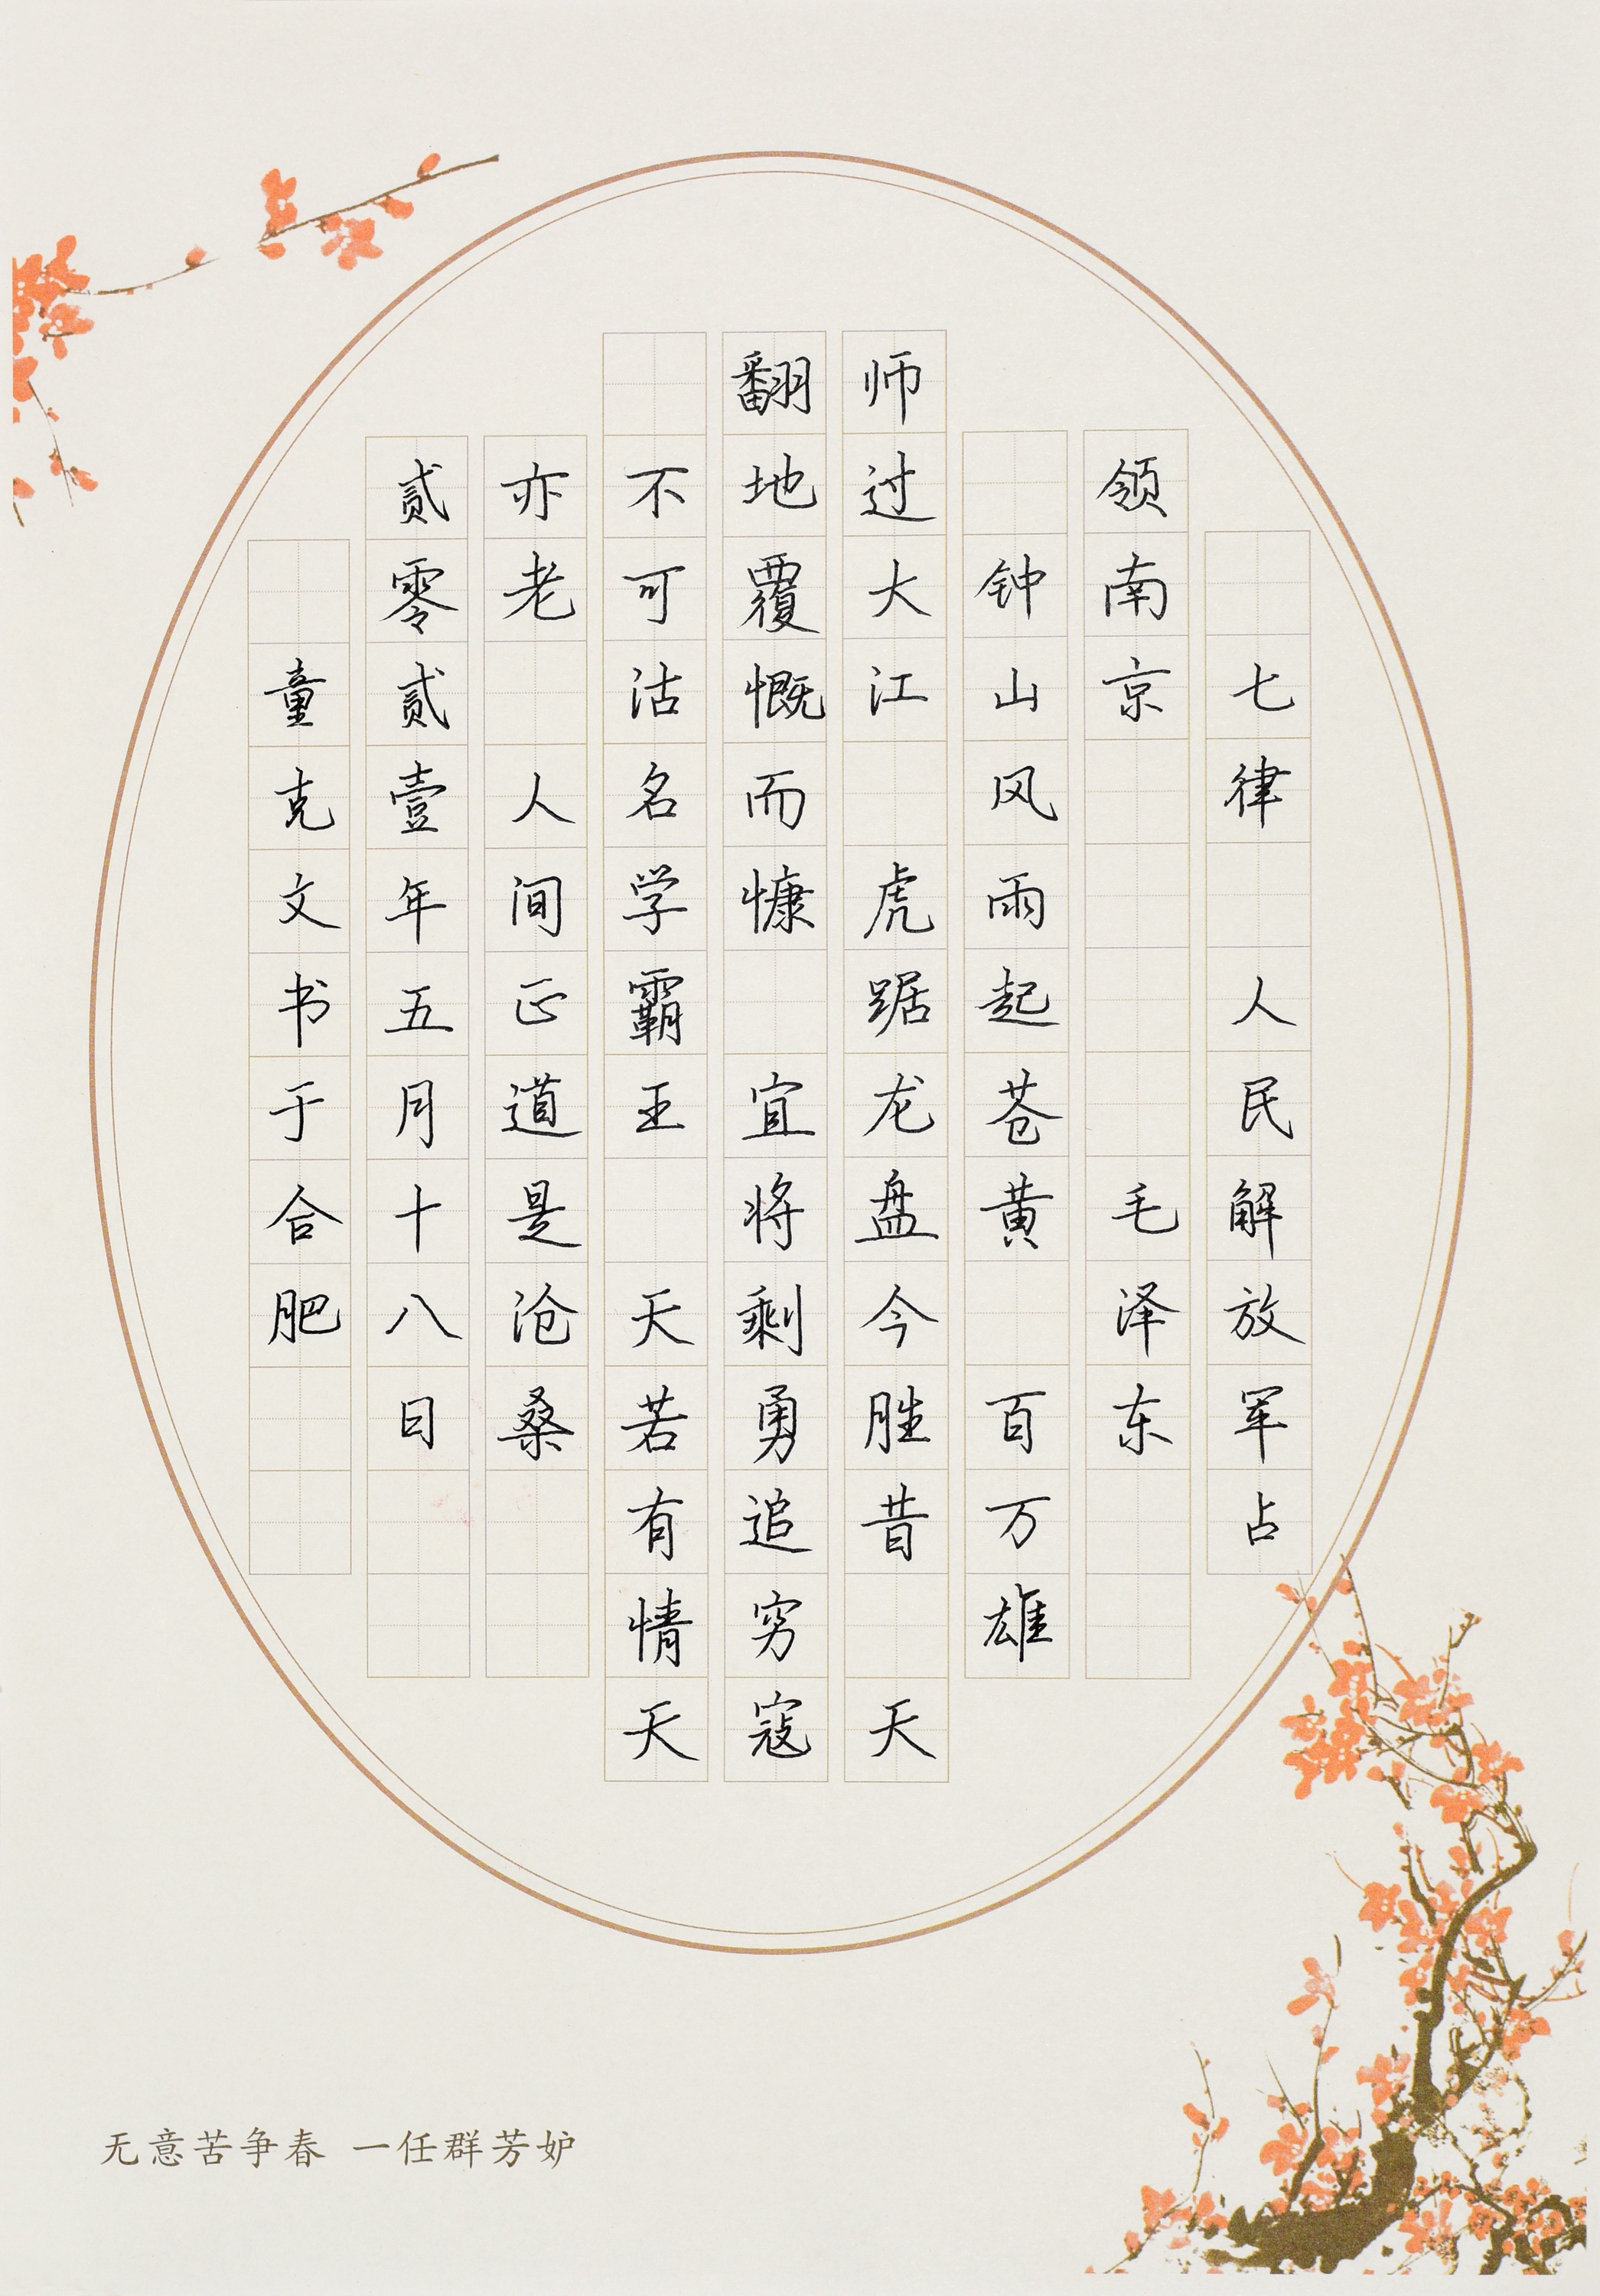 七律 人民解放军占
领南京 毛泽东
钟山风雨起苍黄 百万雄
师过大江 虎踞龙盘今胜昔 天
翻地覆慨而慷 宜将剩勇追穷寇
不可沽名学霸王 天若有情天
亦老 人间正道是沧桑
贰零贰壹年五月十八日
童克文书于合肥
无意苦争春 一任群芳妒